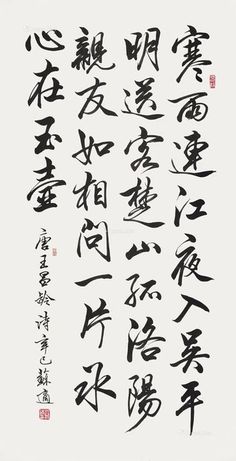 寒雨連江夜入吴平
明送客楚山孤洛陽
親友如相問一片冰
心在玉壺
唐王昌龄诗辛巳蘇適